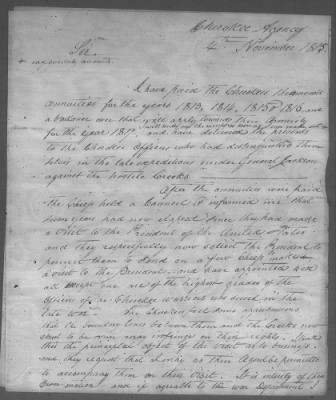 Cherokee Agency
4th November 1815.
Sir
I have paid the Cherokees their
annuities for the years 1813, 1814, 1815 & 1816 and
a balance over that will apply towards their Annuity
for the year 1817. and have delivered the presents
to the Cherokee Officers who had distinguished them
selves in the late expeditions under General Jackson
against the hostile Creeks.
After the annuities were paid
the Chiefs held a Council & informed me that
years had now elapsed since they had made
a visit to the President of the United States
and they respectfully now solicit the President to
permit them to send on a few Chiefs make
a visit to the President, and have appointed
all except one are of the highest grades of the
Officers of the Cherokee warriors who served in the
late war. The Cherokees feel some
that the boundary lines between them and the Creeks now
to be run may infringe on their rights.
the principal object of the visit
and they request that I may as their Agent be permitted
to accompany them on their visit. It is
and if agreeable to the war Department I